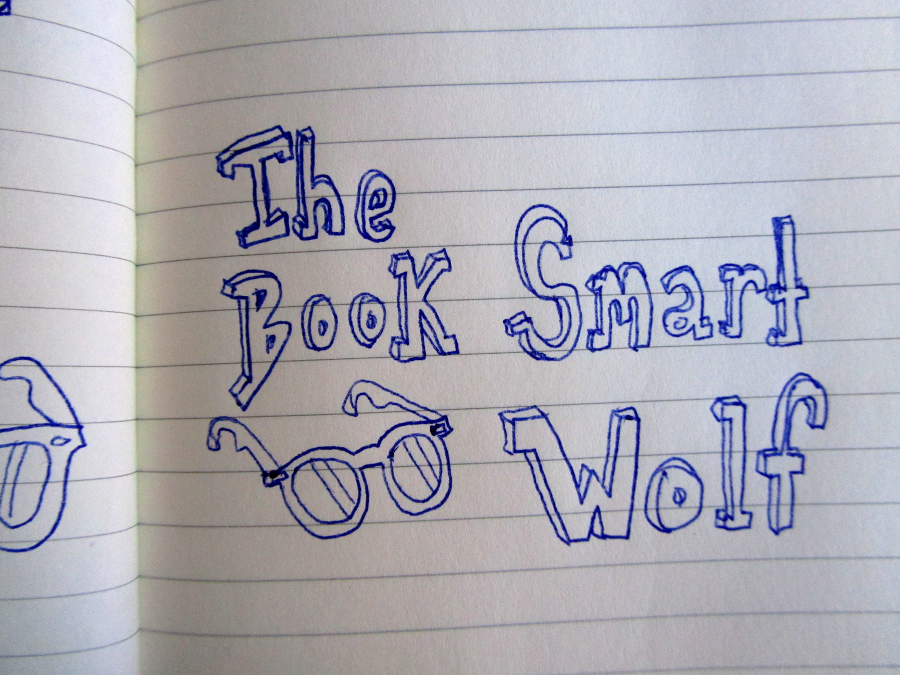 The
Book Smart
Wolf